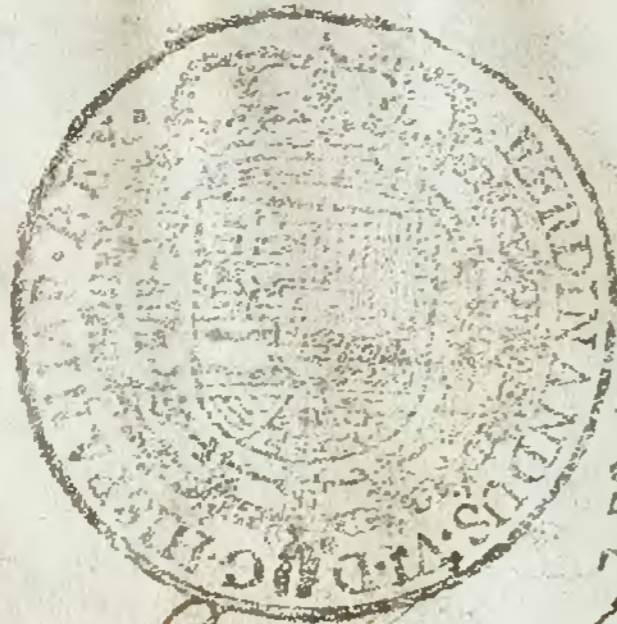 FERDINANDUS·VI·D·G·HISPANIAR·